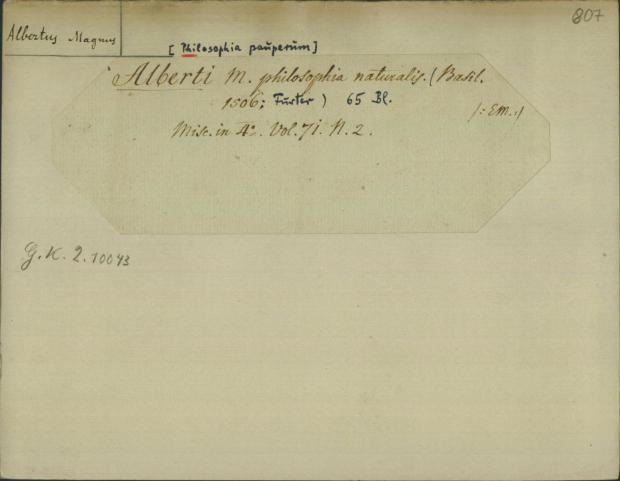 807
Albertus Magnus
[Philosophia pauperum]
Alberti M. philosophia naturalis. (Basil.
1506; Furter) 65 Bl.
/: Em. :/
Misc. in 4º. Vol. 71. N. 2.
G. K. 2. 10043